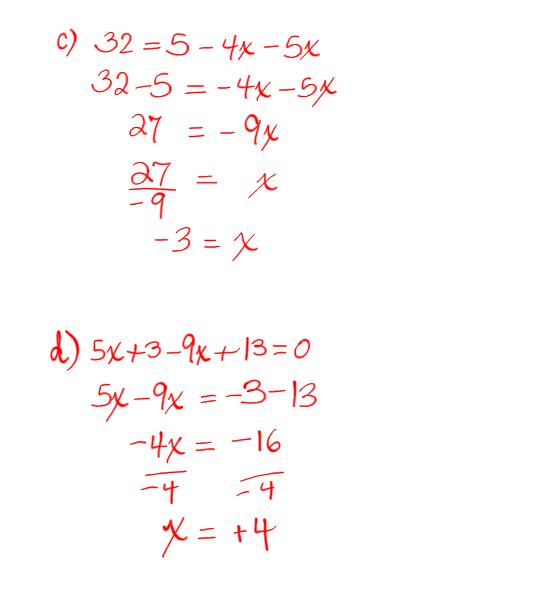 c) 32 = 5 - 4x - 5x
32 - 5 = -4x - 5x
27 = -9x
27/-9 = x
-3 = x
d) 5x + 3 - 9x + 13 = 0
5x - 9x = -3 - 13
-4x = -16
-4 -4
x = +4